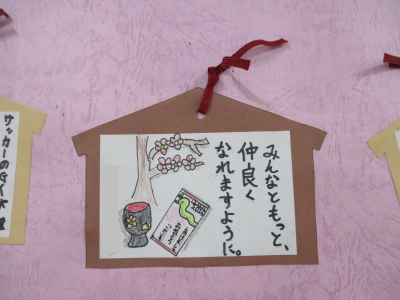 みんなともっと、
仲良く
なれますように。
サッカーの